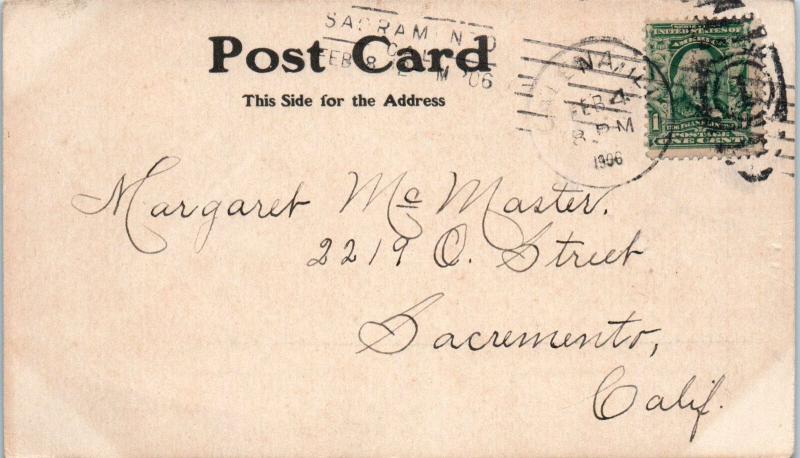 Post Card
This Side for the Address
SACRAMENTO
CAL.
FEB 8
M '06
GALENA, ILL
FEB 4
8 PM
1906
UNITED STATES OF
AMERICA
1
POSTAGE
ONE CENT
Margaret McMaster.
2219 O. Street
Sacremento,
Calif.